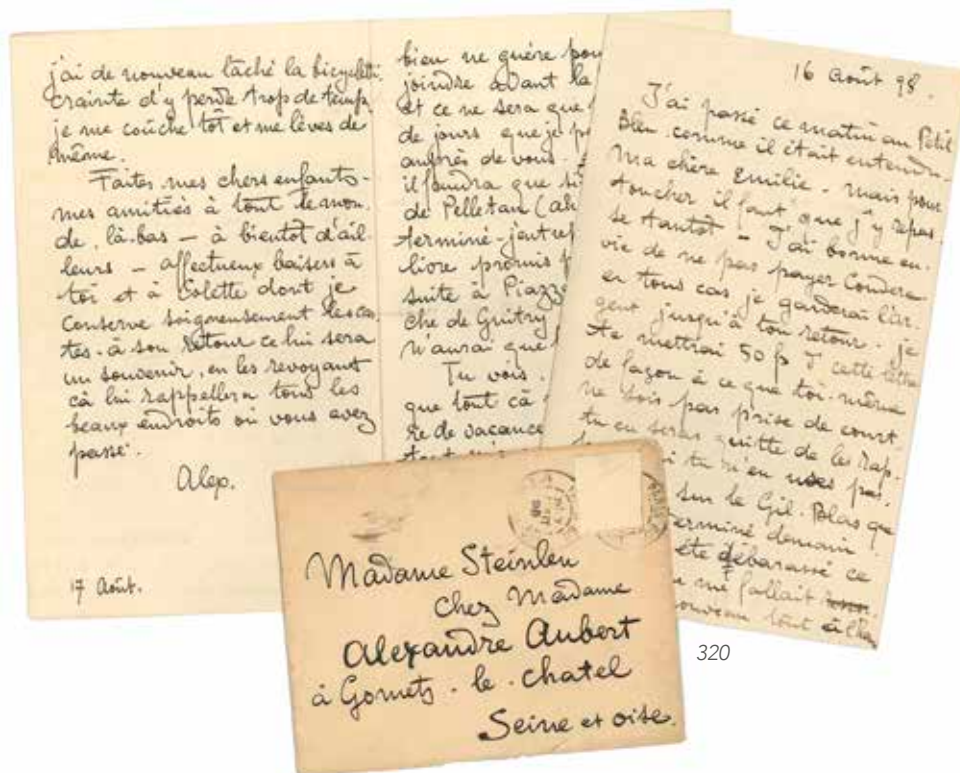 j'ai de nouveau lâché la bicyclette
crainte d'y perdre trop de temps
je me couche tôt et me lèves de
même.
Faites mes chers enfants -
mes amitiés à tout le mon.
de, là-bas — à bientôt d'ail.
leurs — affectueux baisers à
toi et à Colette dont je
conserve soigneusement les car
tes. à son retour ce lui sera
un souvenir, en les revoyant
cà lui rappellera tous les
beaux endroits où vous avez
passé.
Alex.
17 Août.
bien ne guère pou
joindre avant la
et ce ne sera que
de jours que je p
auprès de vous.
il faudra que
de Pelletan
terminé -
livre promis
suite à Piazz
che de Guitry
n'aurai que
Tu vois.
que tout cà
re de vacance
16 août 98.
J'ai passé ce matin au Petit
Bleu comme il était entendu.
Ma chère Emilie - mais pour
toucher il faut que j'y repas.
se tantôt - J'ai bonne en.
vie de ne pas payer
en tous cas je garderai l'ar.
gent jusqu'à ton retour. je
te mettrai 50 f cette lettre
de façon à ce que toi-même
ne sois pas prise de court
tu en seras quitte de les rap.
si tu n'en uses pas.
sur le Gil. Blas que
terminé demain
été débarassé ce
me fallait
nouveau tout à
Madame Steinlen
chez Madame
Alexandre Aubert
à Gometz. le. chatel
Seine et oise.
320